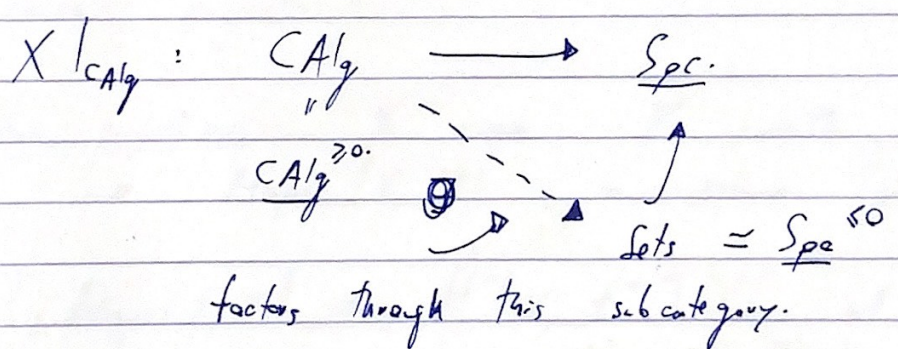 X|_CAlg : CAlg ⟶ Spc.
"
CAlg^≥0.
Sets ≃ Spc^≤0
factors through this subcategory.